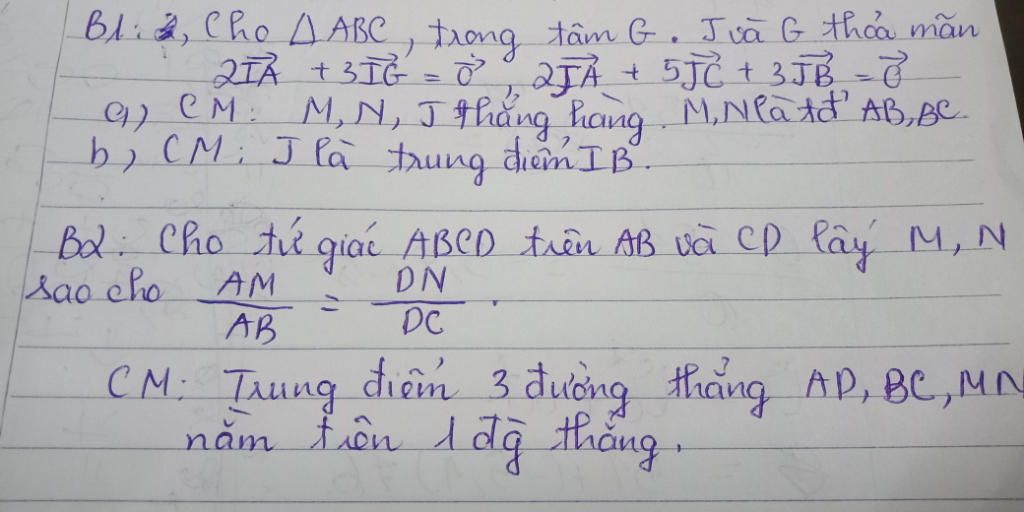 B1: 2, Cho △ABC, trong tâm G. J và G thỏa mãn
2IA⃗ + 3IG⃗ = 0⃗, 2JA⃗ + 5JC⃗ + 3JB⃗ = 0⃗
a) CM: M, N, J thẳng hàng. M, N là tđ AB, BC.
b) CM: J là trung điểm IB.
B2: Cho tứ giác ABCD trên AB và CD lấy M, N
sao cho AM/AB = DN/DC.
CM: Trung điểm 3 đường thẳng AD, BC, MN
nằm trên 1 đg̃ thẳng.